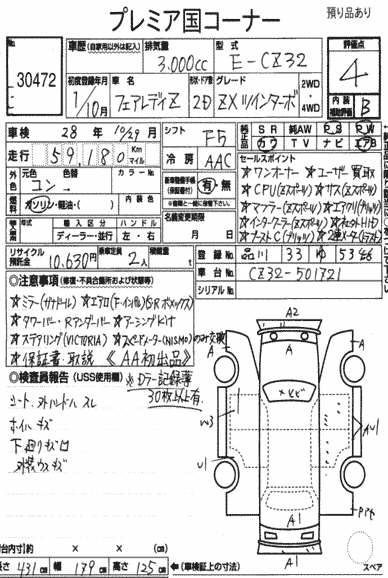 プレミア国コーナー
預り品あり
30472
車歴 (自家用以外は記入)
排気量
3.000cc
型式
E-CZ32
評価点
4
初度登録年月
1/10月
車名
フェアレディZ
ドア・形状
2D
グレード
ZXツインターボ
2WD・4WD
内装補助評価
B
車検 28年10/29月
シフト
F5
純正品
SR 純AW PS PW
カワ TV ナビ エアB
走行 59,180 Km マイル
冷房
AAC
外色
元色 色替
コン
カラーNo
内装色
燃料 ガソリン・軽油・( )
(有)・無
セールスポイント
☆ワンオーナー ☆ユーザー買取
☆CPU(Zスポール) ☆サス(Zスポール)
☆マフラー(Zスポール) ☆エアクリ(ブリッツ)
☆インタークーラー(Zスポール)
☆ブーストC(ブリッツ)
輸入区分 ハンドル
ディーラー・並行 左・右
名義変更期限
月 日
リサイクル預託金 10,630円
乗車定員 2人
登録No 品川 33 ゆ 5346
車台No CZ32-501721
シリアルNo
◎注意事項 (修復・不具合箇所および状態等)
☆タワーバー・Rアンダーバー ☆アーシングKIT
☆ステアリング(VICTORIA) ☆スピードメーター(NISMO)のみ交換
☆保証書・取説 《AA初出品》
◎検査員報告 (USS使用欄)
※Dラー記録簿
30枚以上有
シート・ステハンドルスレ
ホイルキズ
下廻りキズ
外装ウスキズ
A2
A
A
A
W3
U1
AU1
A1
A1
荷台内寸 約 × × (cm)
長さ 431cm 幅 179cm 高さ 125cm
←(車検証上の寸法)
スペア